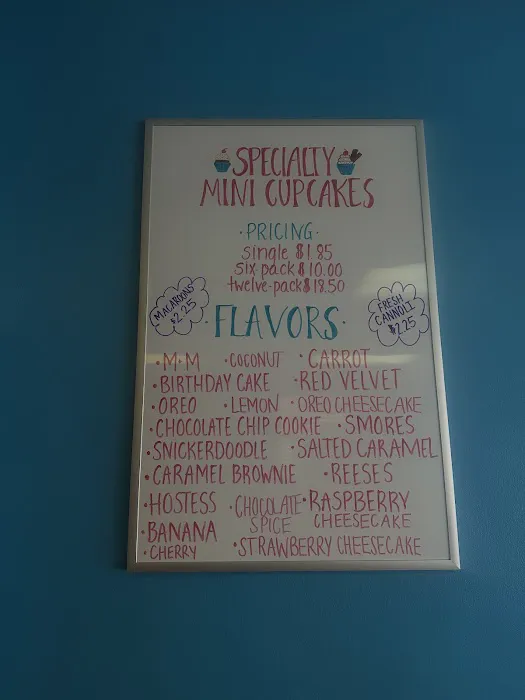 SPECIALTY
MINI CUPCAKES
·PRICING·
single $1.85
six-pack $10.00
twelve-pack $18.50
MACAROONS
$2.25
FRESH
CANNOLI
$2.25
·FLAVORS·
·M·M ·COCONUT ·CARROT
·BIRTHDAY CAKE ·RED VELVET
·OREO ·LEMON ·OREO CHEESECAKE
·CHOCOLATE CHIP COOKIE ·SMORES
·SNICKERDOODLE ·SALTED CARAMEL
·CARAMEL BROWNIE ·REESES
·HOSTESS ·CHOCOLATE SPICE ·RASPBERRY CHEESECAKE
·BANANA
·CHERRY ·STRAWBERRY CHEESECAKE